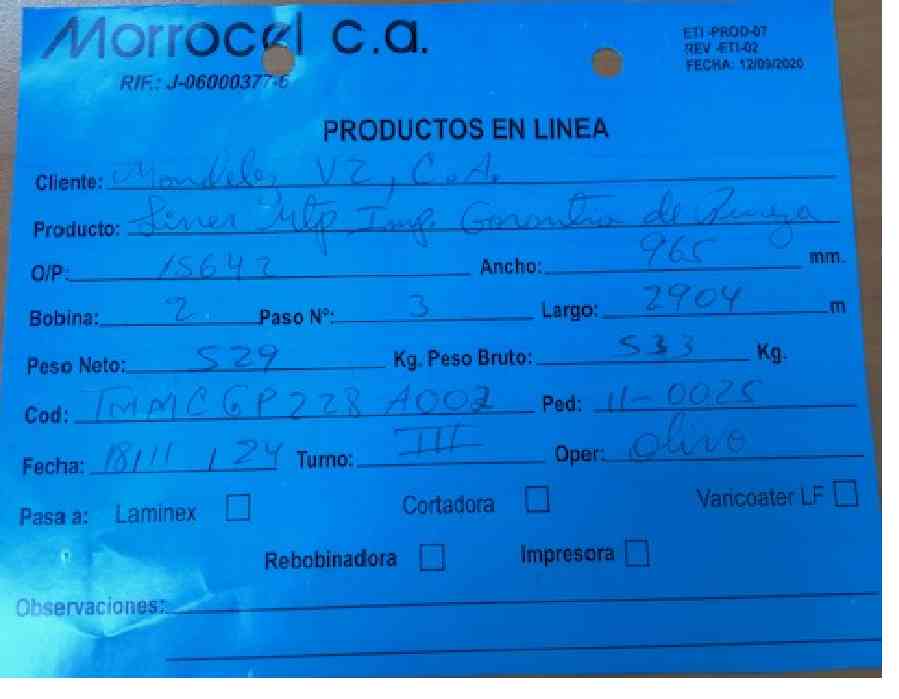 Morrocel c.a.
RIF.: J-06000377-6
ETI -PROD-07
REV -ETI-02
FECHA: 12/09/2020
PRODUCTOS EN LINEA
Cliente: Mondelez VZ, C.A.
Producto: Liner Mtp Imp. Garantia de Pureza
O/P: 15642 Ancho: 965 mm.
Bobina: 2 Paso Nº: 3 Largo: 2904 m
Peso Neto: 529 Kg. Peso Bruto: 533 Kg.
Cod: TMMCGP228 A002 Ped: 11-0025
Fecha: 18/11/24 Turno: III Oper: Olivo
Pasa a: Laminex Cortadora Varicoater LF
Rebobinadora Impresora
Observaciones: